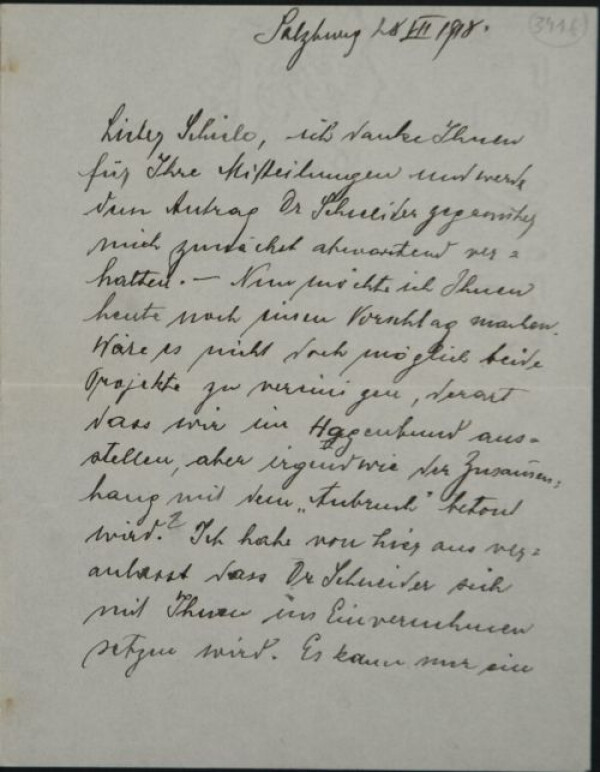 Salzburg 28 VII 1918.
(3416)
Lieber Schiele, ich danke Ihnen
für Ihre Mitteilungen und werde
dem Antrag Dr Schneider gegenüber
mich zunächst abwartend ver=
halten. — Nun möchte ich Ihnen
heute noch einen Vorschlag machen.
Wäre es nicht doch möglich beide
Projekte zu vereinigen, derart
dass wir im Hagenbund aus=
stellen, aber irgendwie der Zusammen=
hang mit dem „Anbruch" betont
wird? Ich habe von hier aus ver=
anlasst dass Dr Schneider sich
mit Ihnen ins Einvernehmen
setzen wird. Es kann nur ein